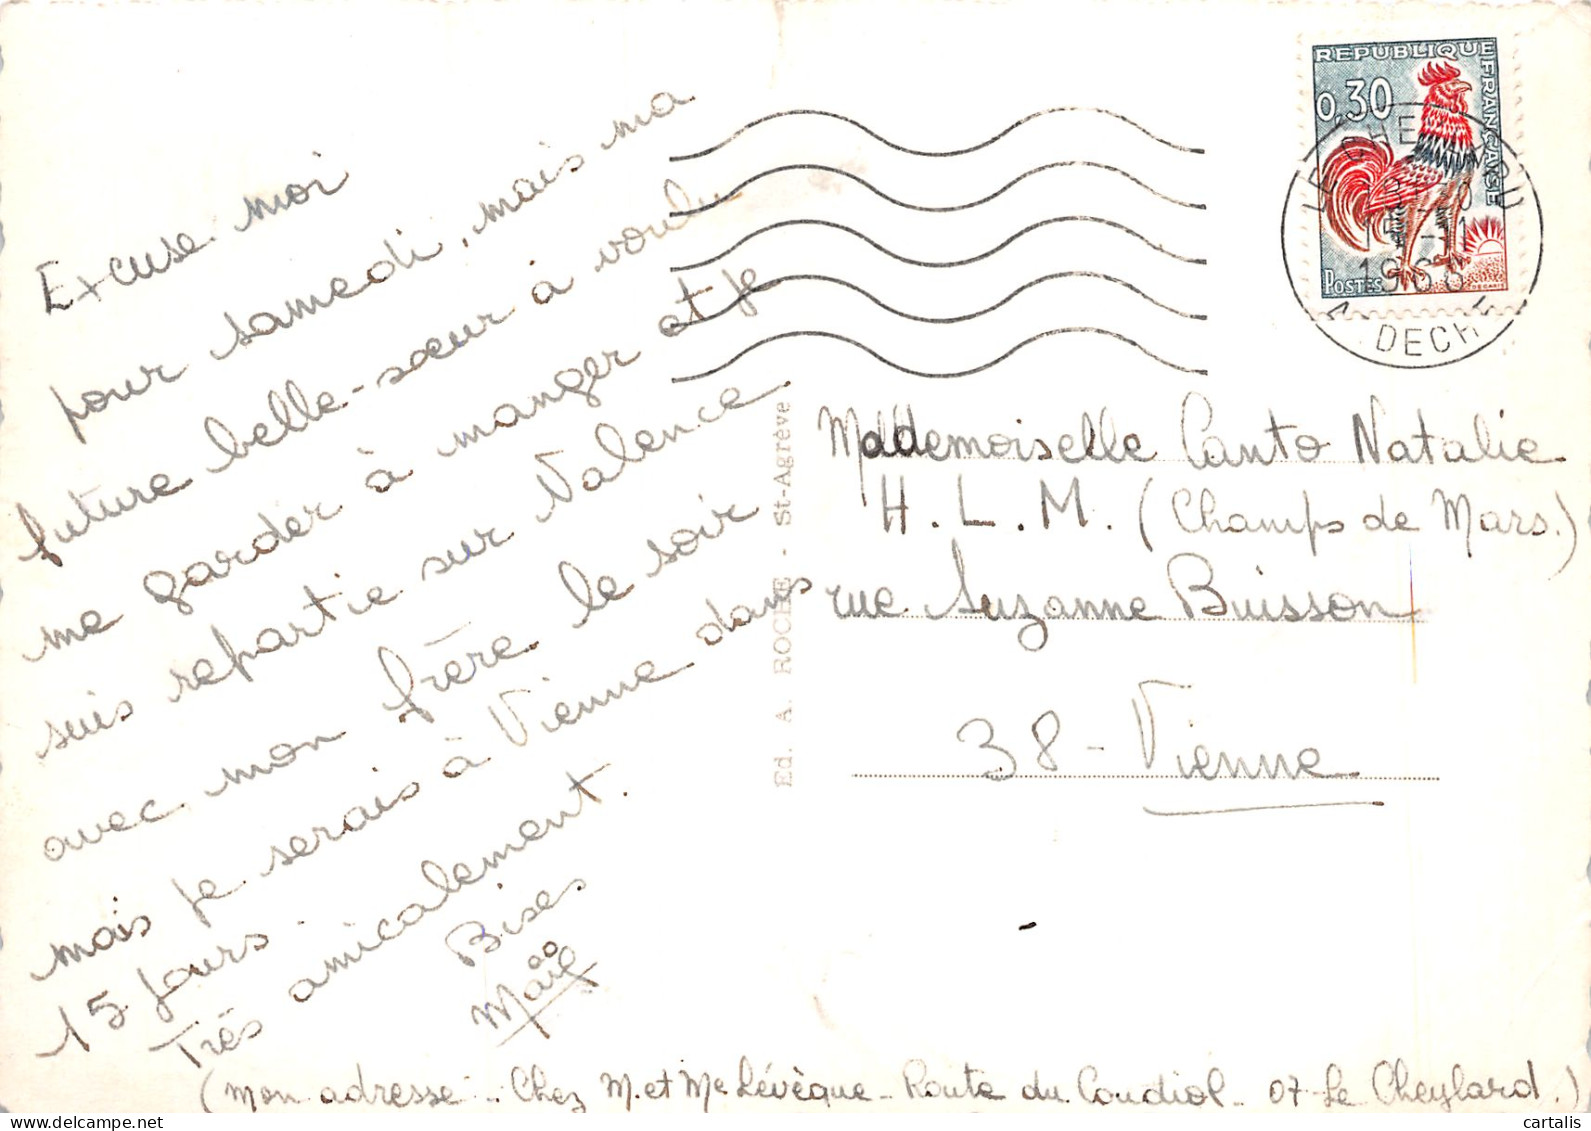 Excuse moi
pour samedi, mais ma
future belle-sœur à voulu
me garder à manger et je
suis repartie sur Valence
avec mon frère le soir
mais je serais à Vienne dans
15 jours.
Très amicalement.
Bises
(mon adresse : Chez M. et Me Lévêque - Route du Condiol - 07 - Le Cheylard.)
Ed. A. ROCHE - St-Agrève
REPUBLIQUE FRANÇAISE
0,30
POSTES
DECARIS
1968
Mademoiselle Canto Natalie
H.L.M. (Champs de Mars.)
rue Suzanne Buisson
38 - Vienne
cartalis